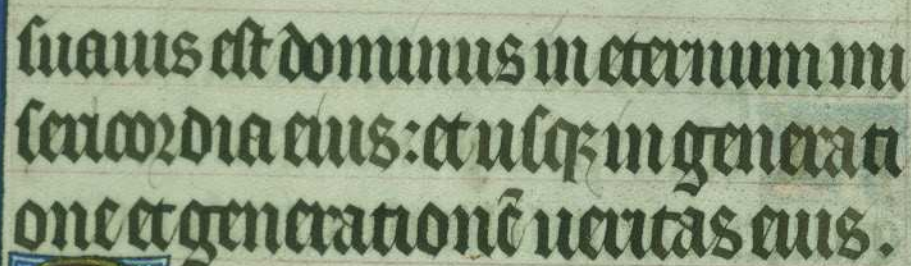 suauis est dominus in eternum mi
sericordia eius: et usqꝫ in generati
one et generationẽ ueritas eius.